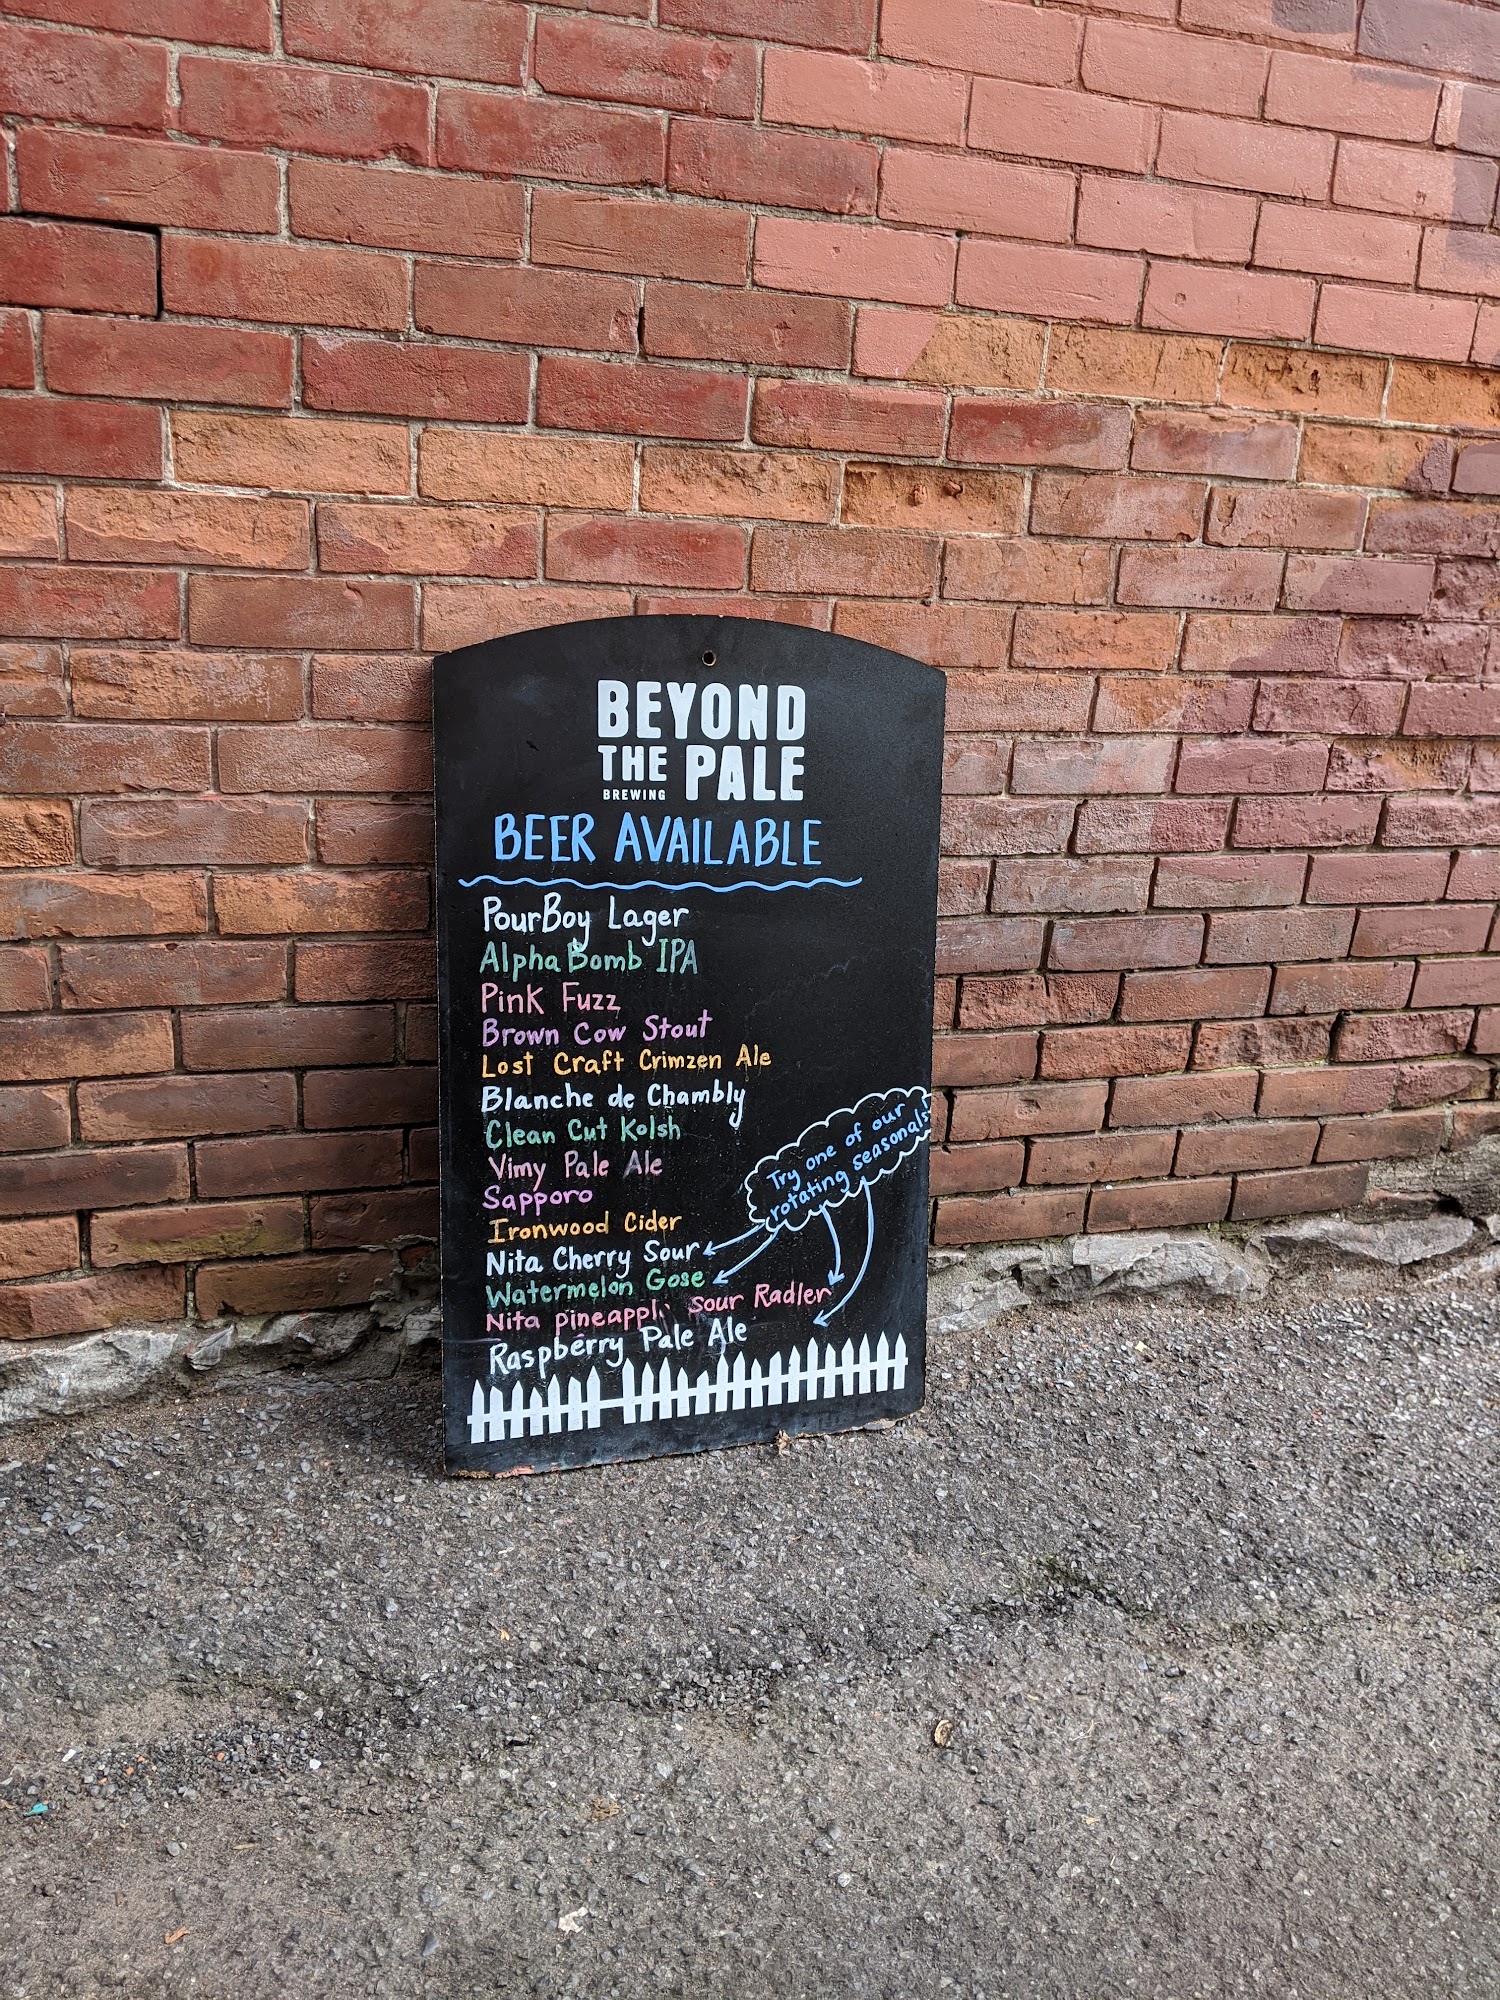 BEYOND
THE PALE
BREWING
BEER AVAILABLE
PourBoy Lager
AlphaBomb IPA
Pink Fuzz
Brown Cow Stout
Lost Craft Crimzen Ale
Blanche de Chambly
Clean Cut Kolsh
Vimy Pale Ale
Sapporo
Ironwood Cider
Nita Cherry Sour
Watermelon Gose
Nita pineappl Sour Radler
Raspberry Pale Ale
Try one of our
rotating seasonals